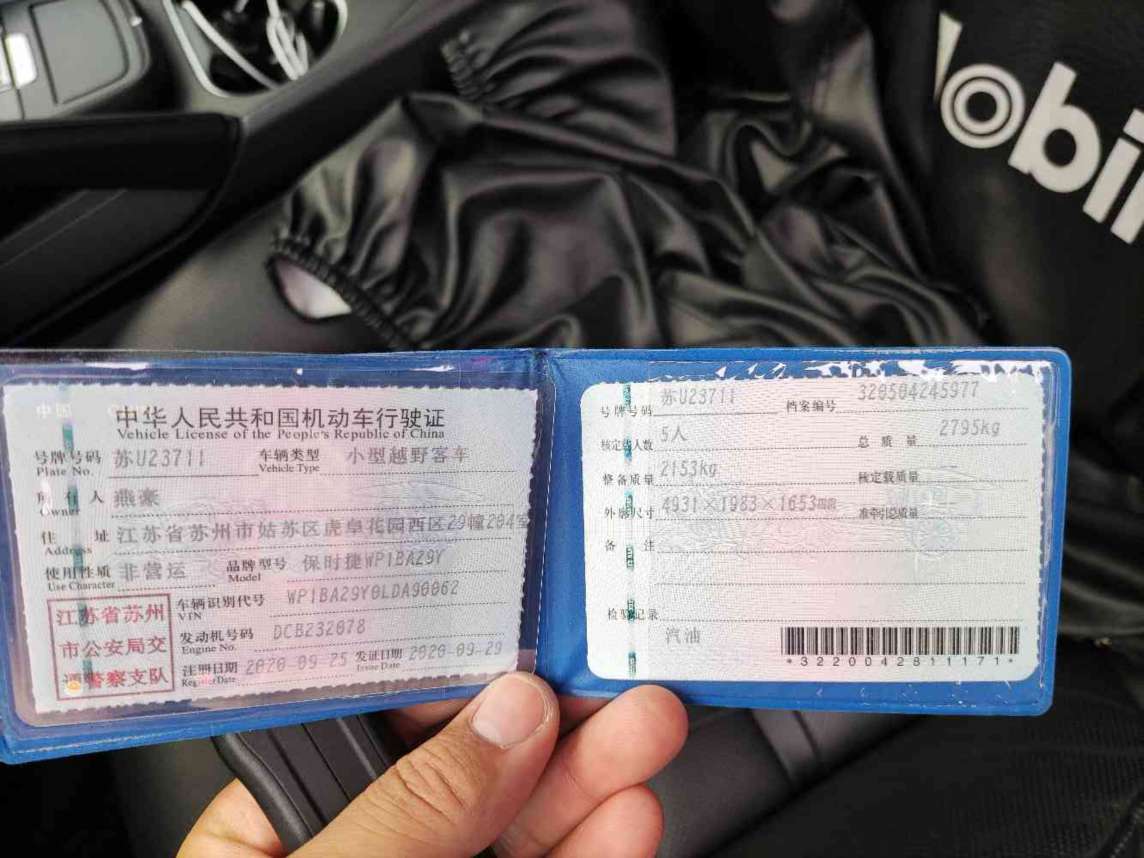 中华人民共和国机动车行驶证
Vehicle License of the People's Republic of China
号牌号码 苏U23711 车辆类型 小型越野客车
Plate No. Vehicle Type
所有人 燕豪
Owner
住址 江苏省苏州市姑苏区虎阜花园西区29幢204室
Address
使用性质 非营运 品牌型号 保时捷WP1BA29Y
Use Character Model
车辆识别代号 WP1BA29Y0LDA90062
VIN
发动机号码 DCB232078
Engine No.
注册日期 2020-09-25 发证日期 2020-09-29
Register Date Issue Date
江苏省苏州
市公安局交
通警察支队
号牌号码 苏U23711 档案编号 320504245977
核定载人数 5人 总质量 2795kg
整备质量 2153kg 核定载质量
外廓尺寸 4931×1983×1653mm 准牵引总质量
备注
检验记录
汽油
*3220042811171*
obi